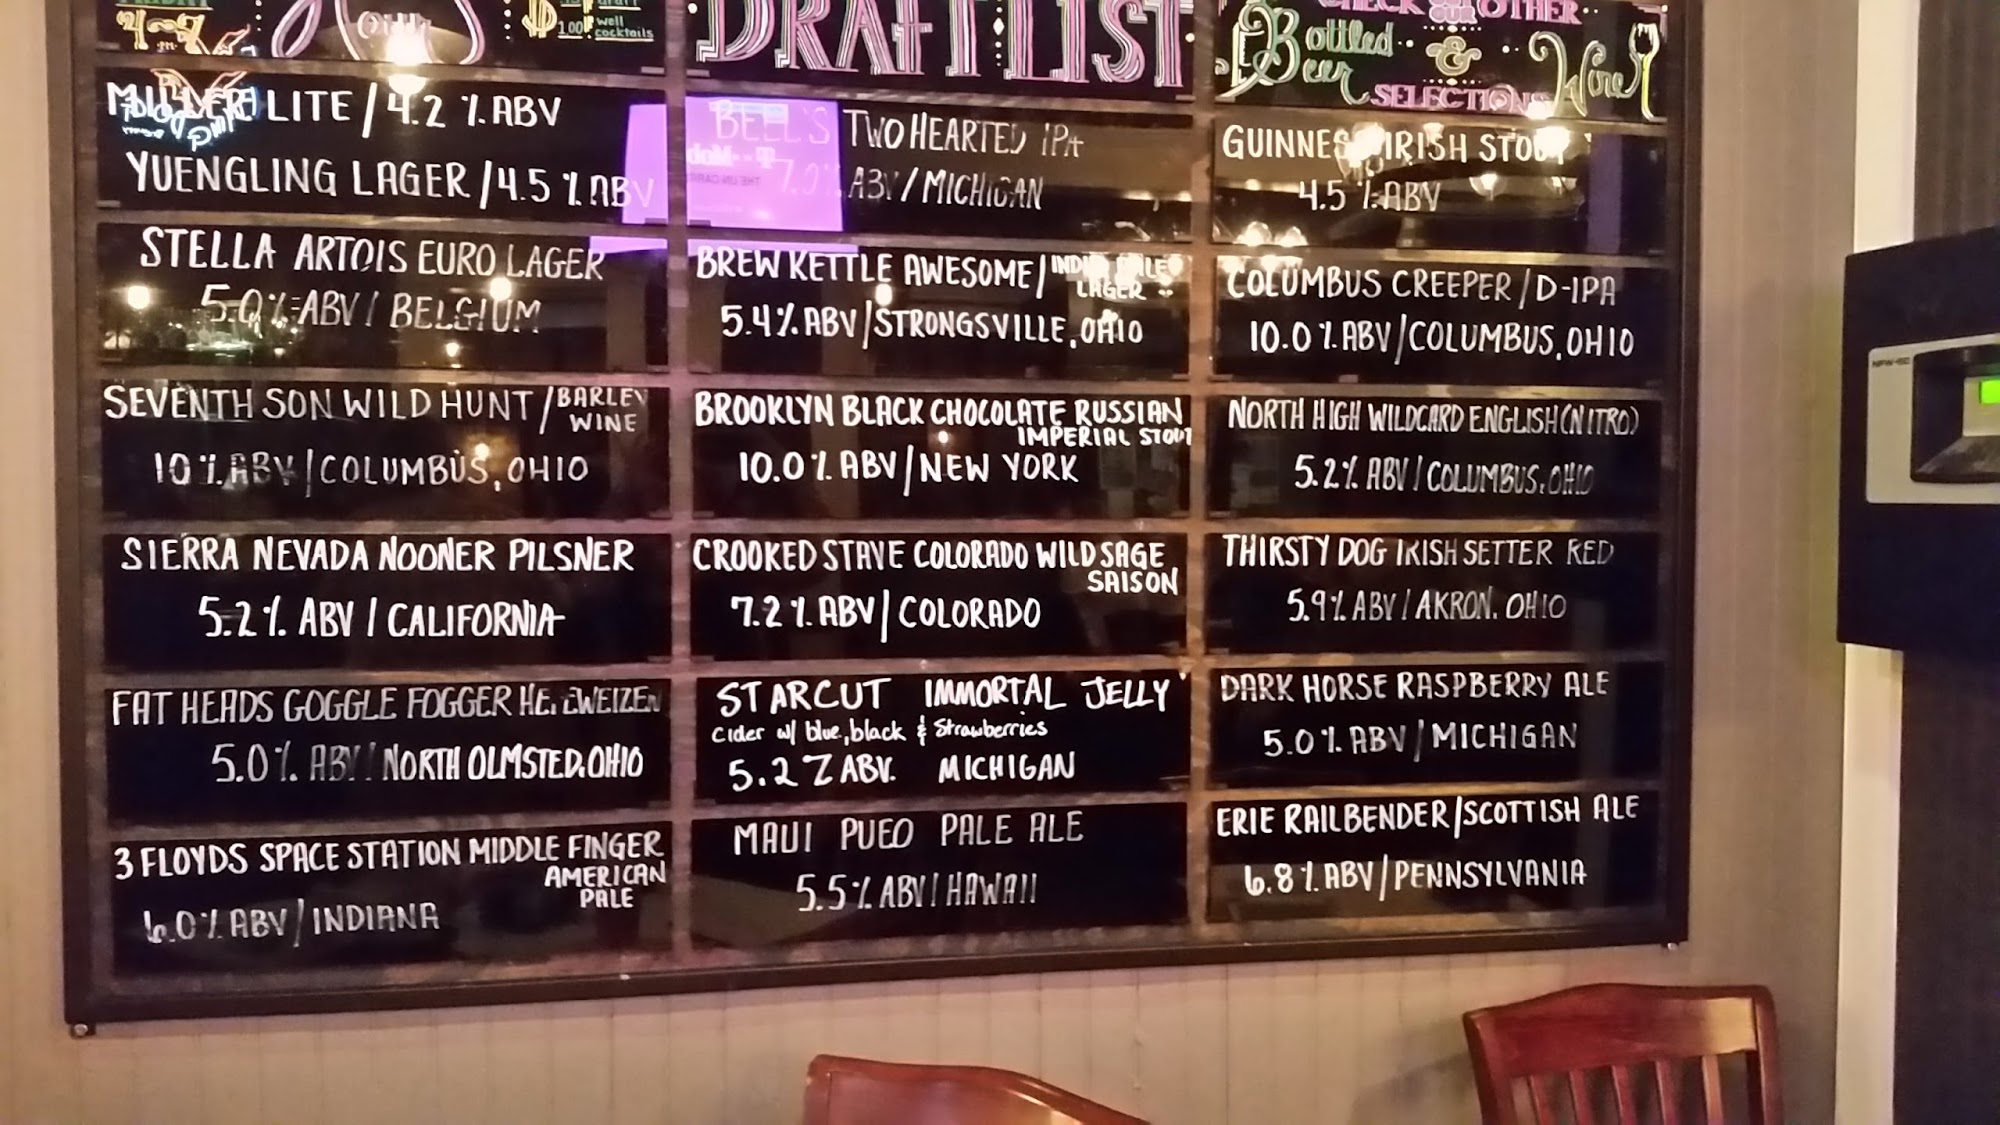 4-7
$1.00 well
cocktails
DRAFT LIST
CHECK OUT OUR OTHER
Bottled
Beer & Wine
SELECTIONS
MILLER LITE / 4.2 % ABV
YUENGLING LAGER / 4.5 % ABV
STELLA ARTOIS EURO LAGER
5.0 % ABV / BELGIUM
SEVENTH SON WILD HUNT / BARLEY
WINE
10 % ABV / COLUMBUS, OHIO
SIERRA NEVADA NOONER PILSNER
5.2 % ABV / CALIFORNIA
FAT HEADS GOGGLE FOGGER HEFEWEIZEN
5.0 % ABV / NORTH OLMSTED, OHIO
3 FLOYDS SPACE STATION MIDDLE FINGER
AMERICAN
PALE
6.0 % ABV / INDIANA
BELL'S TWO HEARTED IPA
7.0 % ABV / MICHIGAN
BREW KETTLE AWESOME / INDIA PALE
LAGER
5.4 % ABV / STRONGSVILLE, OHIO
BROOKLYN BLACK CHOCOLATE RUSSIAN
IMPERIAL STOUT
10.0 % ABV / NEW YORK
CROOKED STAVE COLORADO WILD SAGE
SAISON
7.2 % ABV / COLORADO
STARCUT IMMORTAL JELLY
Cider w/ blue, black & Strawberries
5.2 % ABV. MICHIGAN
MAUI PUEO PALE ALE
5.5 % ABV / HAWAII
GUINNESS IRISH STOUT
4.5 % ABV
COLUMBUS CREEPER / D-IPA
10.0 % ABV / COLUMBUS, OHIO
NORTH HIGH WILDCARD ENGLISH (NITRO)
5.2 % ABV / COLUMBUS, OHIO
THIRSTY DOG IRISH SETTER RED
5.9 % ABV / AKRON, OHIO
DARK HORSE RASPBERRY ALE
5.0 % ABV / MICHIGAN
ERIE RAILBENDER / SCOTTISH ALE
6.8 % ABV / PENNSYLVANIA